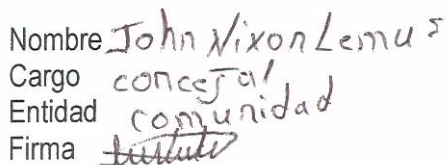 Nombre John Nixon Lemus
Cargo concejal
Entidad comunidad
Firma